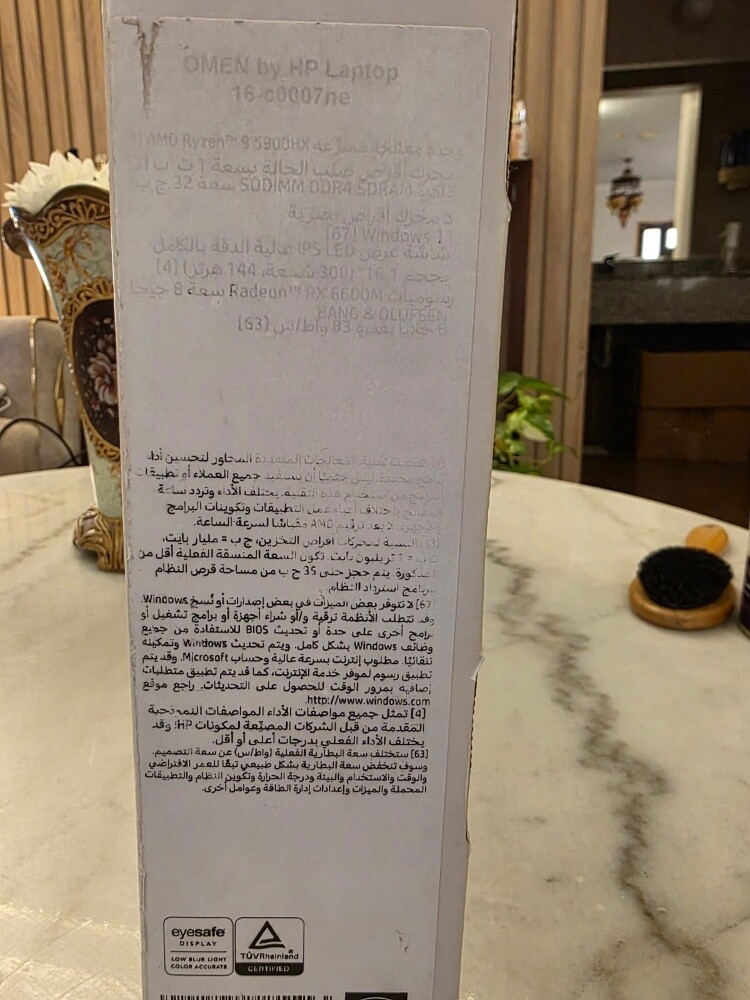 OMEN by HP Laptop
16-c0007ne
وحدة معالجة مركزية AMD Ryzen™ 9 5900HX
محرك أقراص صلب الحالة بسعة 1 ت ب
ذاكرة SODIMM DDR4 SDRAM سعة 32 ج ب
لا محرك أقراص بصرية
Windows 11 [67]
شاشة عرض IPS LED عالية الدقة بالكامل
بحجم 16.1" (300 شمعة، 144 هرتز) [4]
رسوميات Radeon™ RX 6600M سعة 8 جيجا
BANG & OLUFSEN
6 خلايا بقدرة 83 واط/س [63]
صُممت تقنية المعالجات المتعددة المحاور لتحسين أداء
برامج محددة. ليس حتميًا أن يستفيد جميع العملاء أو تطبيقات
البرامج من استخدام هذه التقنية. يختلف الأداء وتردد ساعة
المعالج باختلاف أعباء عمل التطبيقات وتكوينات البرامج
والأجهزة. لا يعد ترقيم AMD مقياسًا لسرعة الساعة.
بالنسبة لمحركات أقراص التخزين، ج ب = مليار بايت،
ت ب = 1 تريليون بايت. تكون السعة المنسقة الفعلية أقل من
المذكورة. يتم حجز حتى 35 ج ب من مساحة قرص النظام
لبرنامج استرداد النظام.
[67] لا تتوفر بعض الميزات في بعض إصدارات أو نُسخ Windows.
وقد تتطلب الأنظمة ترقية و/أو شراء أجهزة أو برامج تشغيل أو
برامج أخرى على حدة أو تحديث BIOS للاستفادة من جميع
وظائف Windows بشكل كامل. ويتم تحديث Windows وتمكينه
تلقائيًا. مطلوب إنترنت بسرعة عالية وحساب Microsoft. وقد يتم
تطبيق رسوم لموفر خدمة الإنترنت، كما قد يتم تطبيق متطلبات
إضافية بمرور الوقت للحصول على التحديثات. راجع موقع
http://www.windows.com.
[4] تمثل جميع مواصفات الأداء المواصفات النموذجية
المقدمة من قبل الشركات المصنّعة لمكونات HP؛ وقد
يختلف الأداء الفعلي بدرجات أعلى أو أقل.
[63] ستختلف سعة البطارية الفعلية (واط/س) عن سعة التصميم.
وسوف تنخفض سعة البطارية بشكل طبيعي تبعًا للعمر الافتراضي
والوقت والاستخدام والبيئة ودرجة الحرارة وتكوين النظام والتطبيقات
المحملة والميزات وإعدادات إدارة الطاقة وعوامل أخرى.
eyesafe
DISPLAY
LOW BLUE LIGHT
COLOR ACCURATE
TÜVRheinland
CERTIFIED